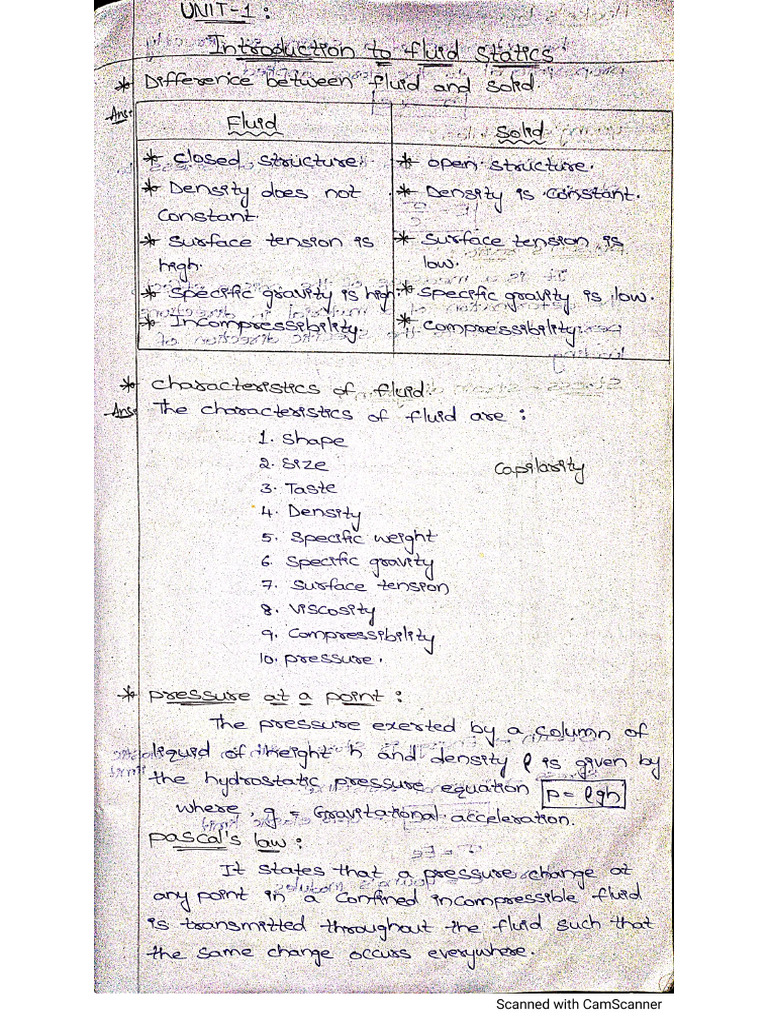 UNIT-1:
Introduction to fluid statics
* Difference between fluid and solid.
Ans:
Fluid
Solid
* closed structure.
* open structure.
* Density does not
constant.
* Density is constant.
* surface tension is
high.
* surface tension is
low.
* specific gravity is high.
* specific gravity is low.
* Incompressibility.
* compressibility.
* characteristics of fluid.
Ans: The characteristics of fluid are:
1. shape
2. size
capilarity
3. Taste
4. Density
5. specific weight
6. specific gravity
7. surface tension
8. viscosity
9. compressibility
10. pressure.
* pressure at a point:
The pressure exerted by a column of
liquid of height h and density ρ is given by
the hydrostatic pressure equation p = ρgh
where, g = Gravitational acceleration.
pascal's law:
It states that a pressure change at
any point in a confined incompressible fluid
is transmitted throughout the fluid such that
the same change occurs everywhere.
Scanned with CamScanner